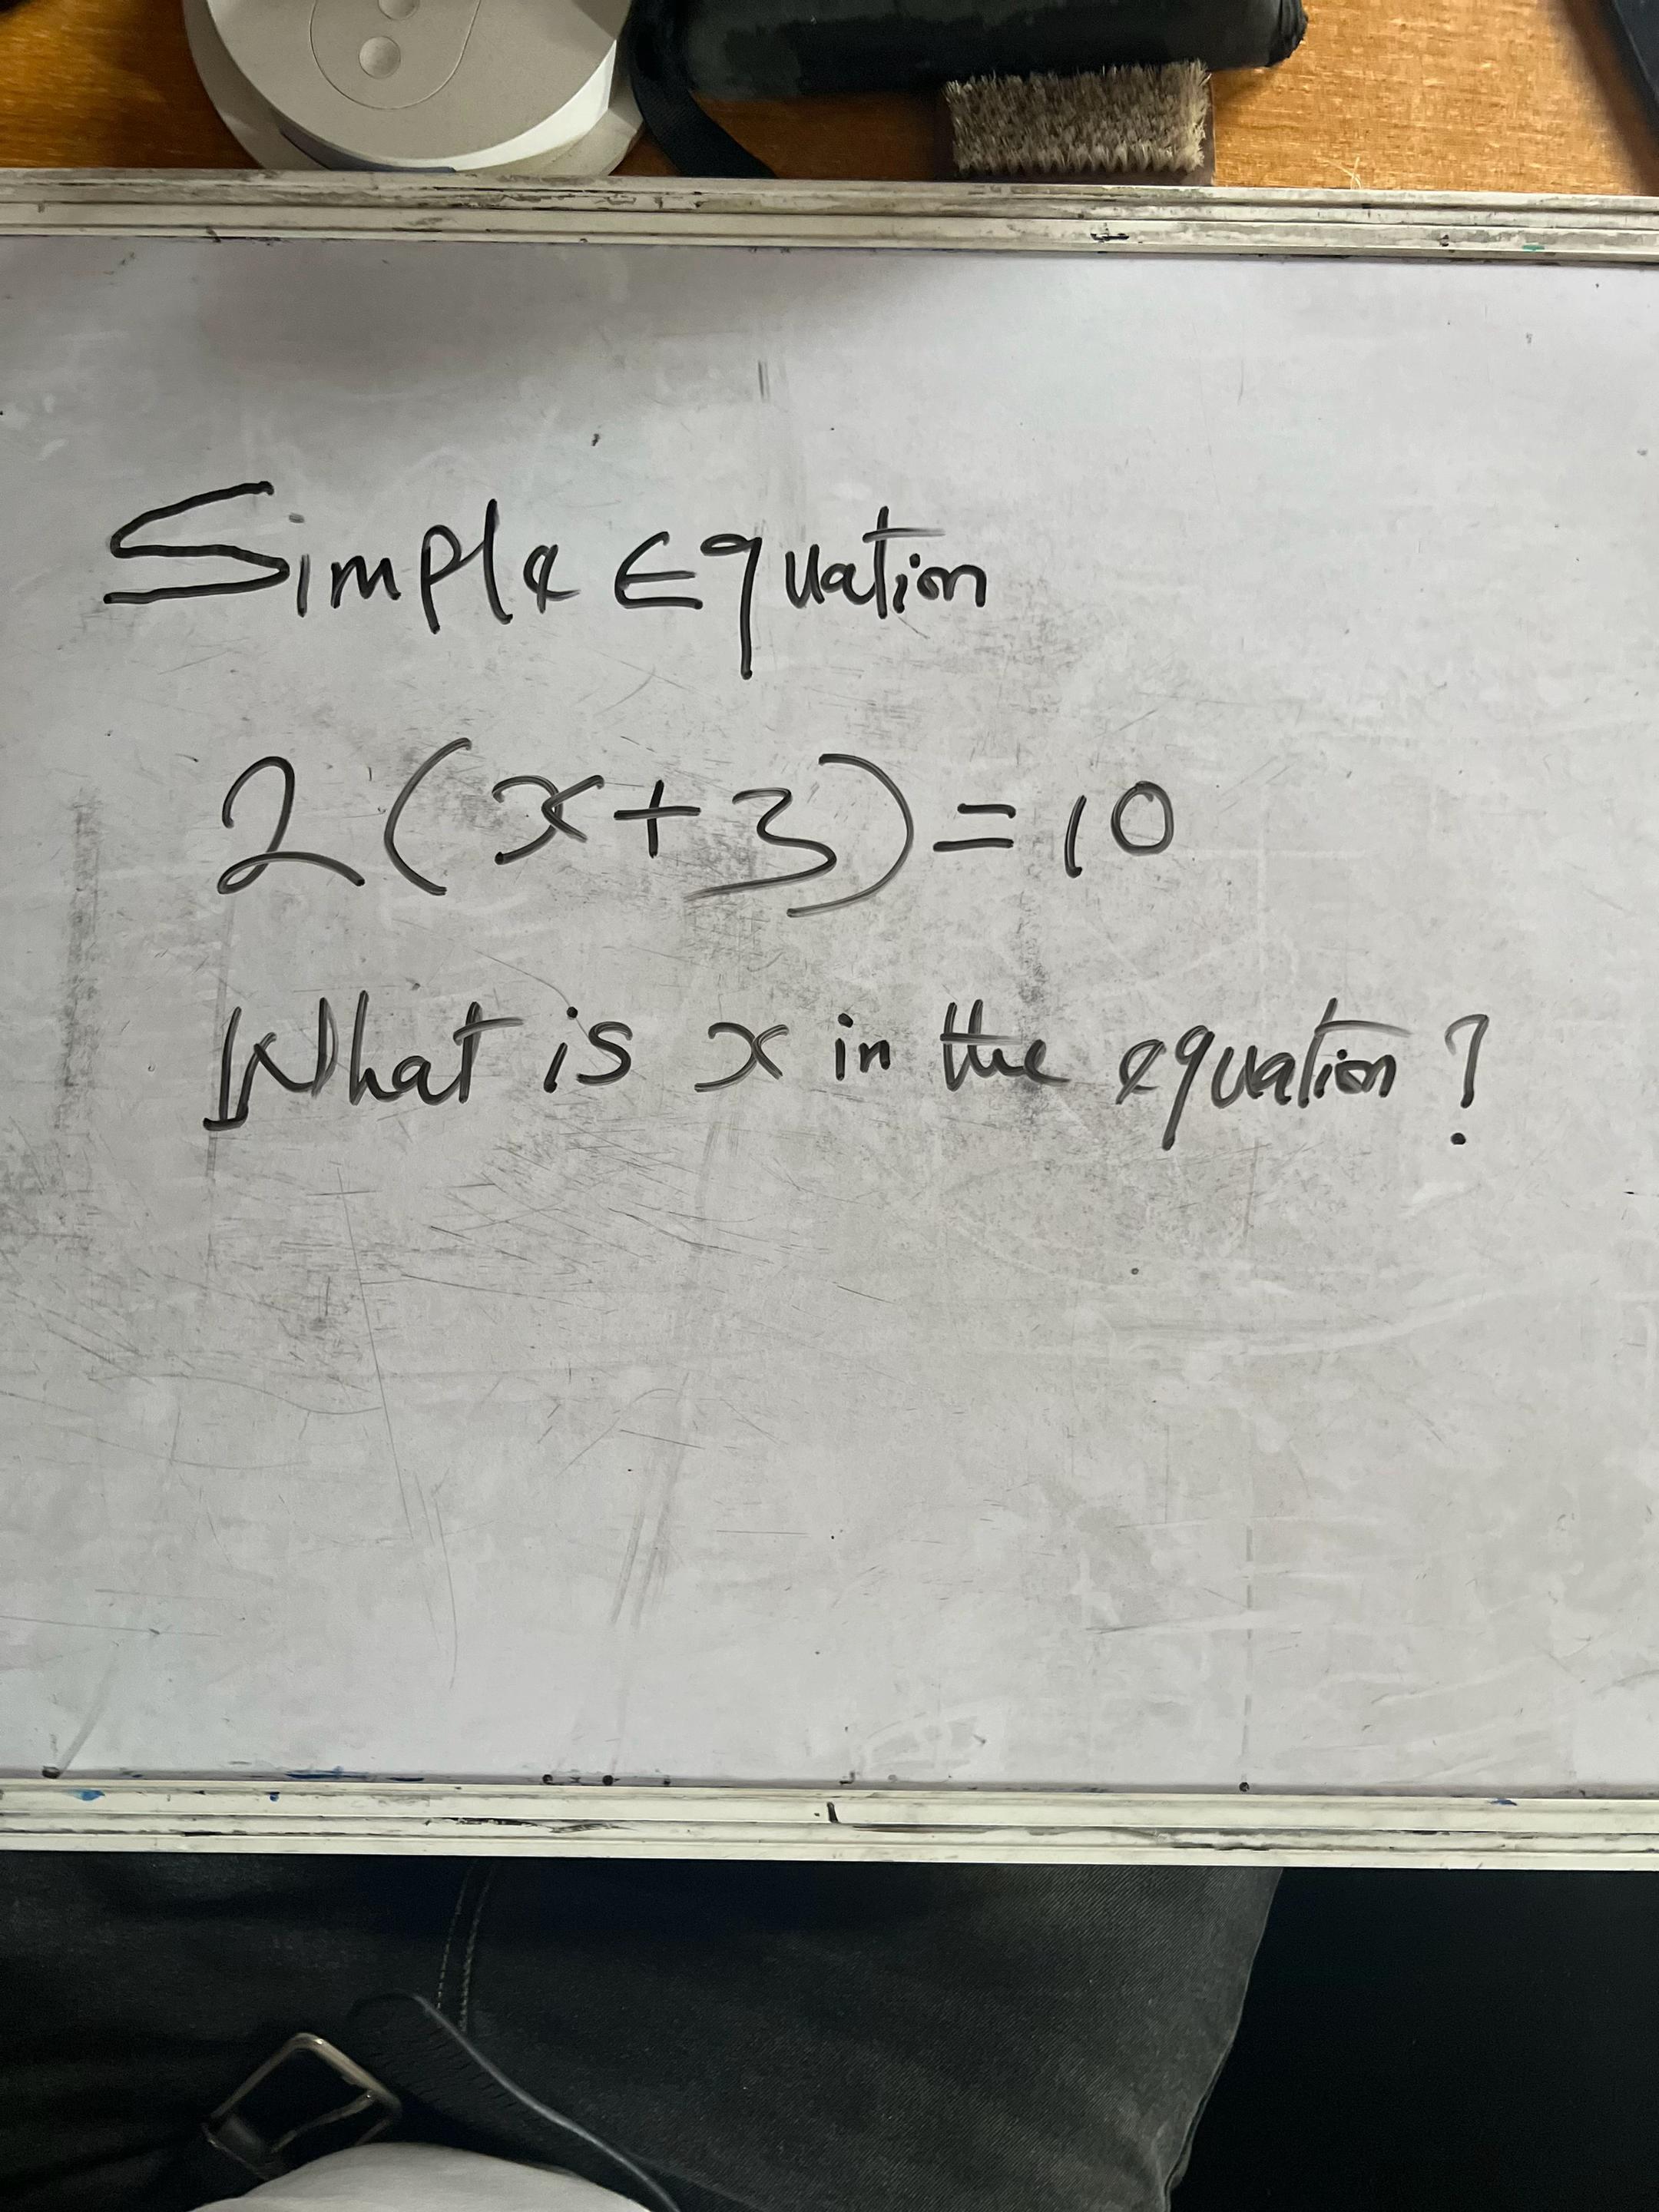 Simple Equation
2(x+3)=10
What is x in the equation?